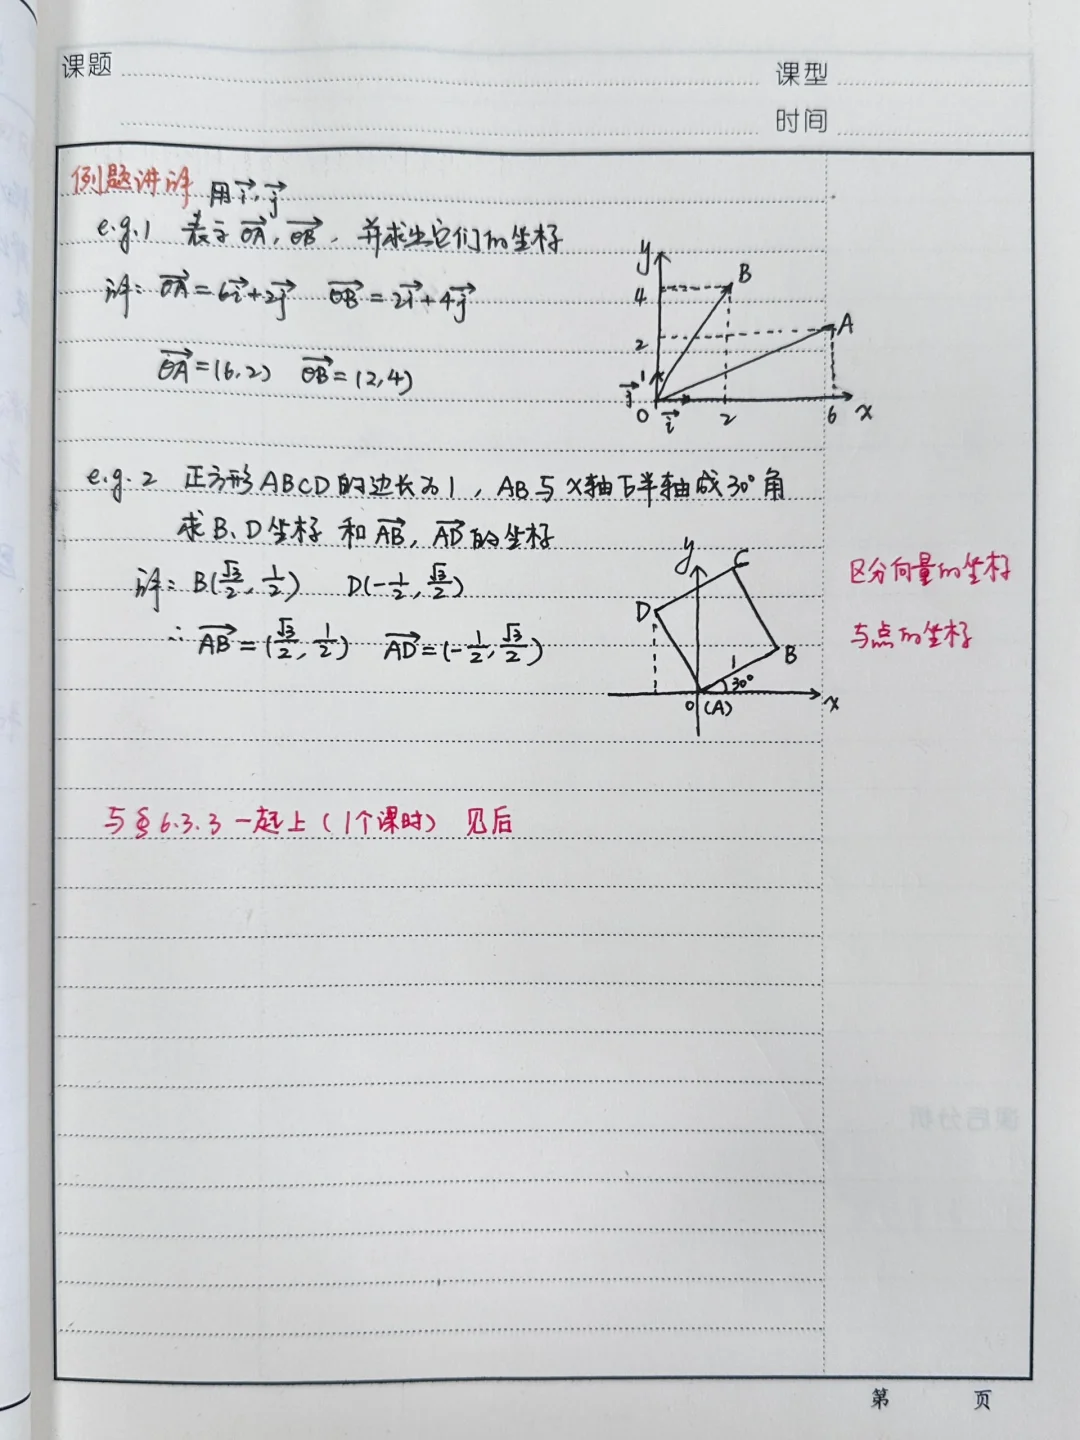 课题
课型
时间
例题讲解
用 i⃗, j⃗
e.g.1 表示 OA⃗, OB⃗, 并求出它们的坐标
解: OA⃗=6i⃗+2j⃗ OB⃗=2i⃗+4j⃗
OA⃗=(6,2) OB⃗=(2,4)
y
B
4
A
2
1
j⃗
O
i⃗
2
6
x
e.g.2 正方形ABCD的边长为1, AB与x轴正半轴成30°角
求B、D坐标 和AB⃗, AD⃗的坐标
解: B(√3/2, 1/2) D(-1/2, √3/2)
∴ AB⃗=(√3/2, 1/2) AD⃗=(-1/2, √3/2)
y
C
D
B
1
30°
O
(A)
x
区分向量的坐标
与点的坐标
与§6.3.3一起上(1个课时) 见后
课后分析
第 页